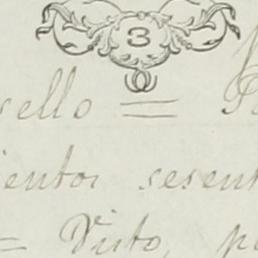 3
sello =
ientos sesent
= Visto, p